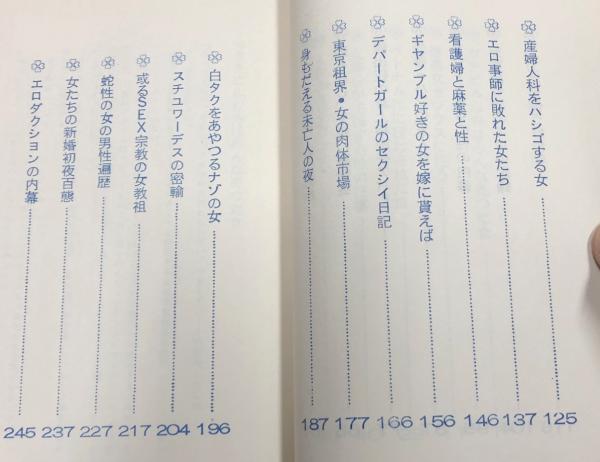 産婦人科をハシゴする女 125
エロ事師に敗れた女たち 137
看護婦と麻薬と性 146
ギャンブル好きの女を嫁に貰えば 156
デパートガールのセクシイ日記 166
東京租界・女の肉体市場 177
身もだえる未亡人の夜 187
白タクをあやつるナゾの女 196
スチュワーデスの密輸 204
或るSEX宗教の女教祖 217
蛇性の女の男性遍歴 227
女たちの新婚初夜百態 237
エロダクションの内幕 245